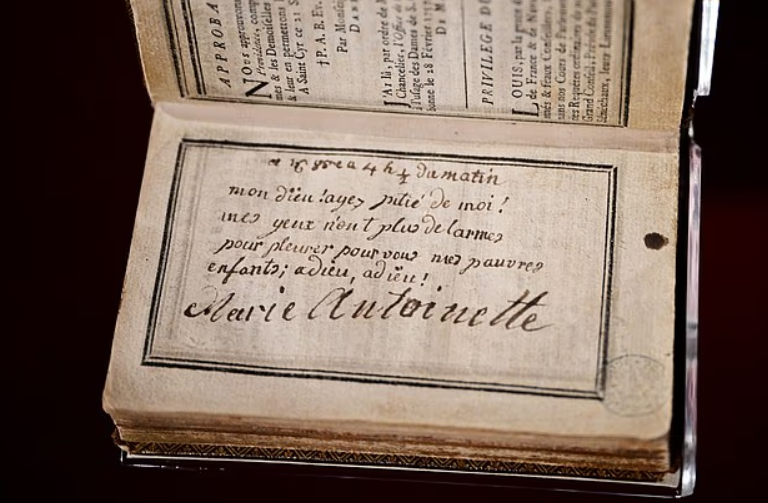 APPROBA
NOUS approuvons
Providence, comp
mes & les Demoiselles
& leur en permettons
A Saint Cyr ce 21 S
†P. A. R. Ev.
Par Monsei
DAN
J'AI lû, par ordre de M
Chancelier, l'Office d
l'usage des Dames de S.
bonne le 28 Février
DE M
PRIVILEGE DU
LOUIS, par la
de France & de Nava
amés & féaux Conseillers
nos Cours de Parlemen
es Requêtes ordinaires de
Grand Conseil, Prévôt de Pa
énéchaux, leurs Lieutenan
16 8bre a 4 h ½ du matin
mon dieu ! ayez pitié de moi !
mes yeux n'ont plus de larmes
pour pleurer pour vous mes pauvres
enfants; adieu, adieu !
Marie Antoinette